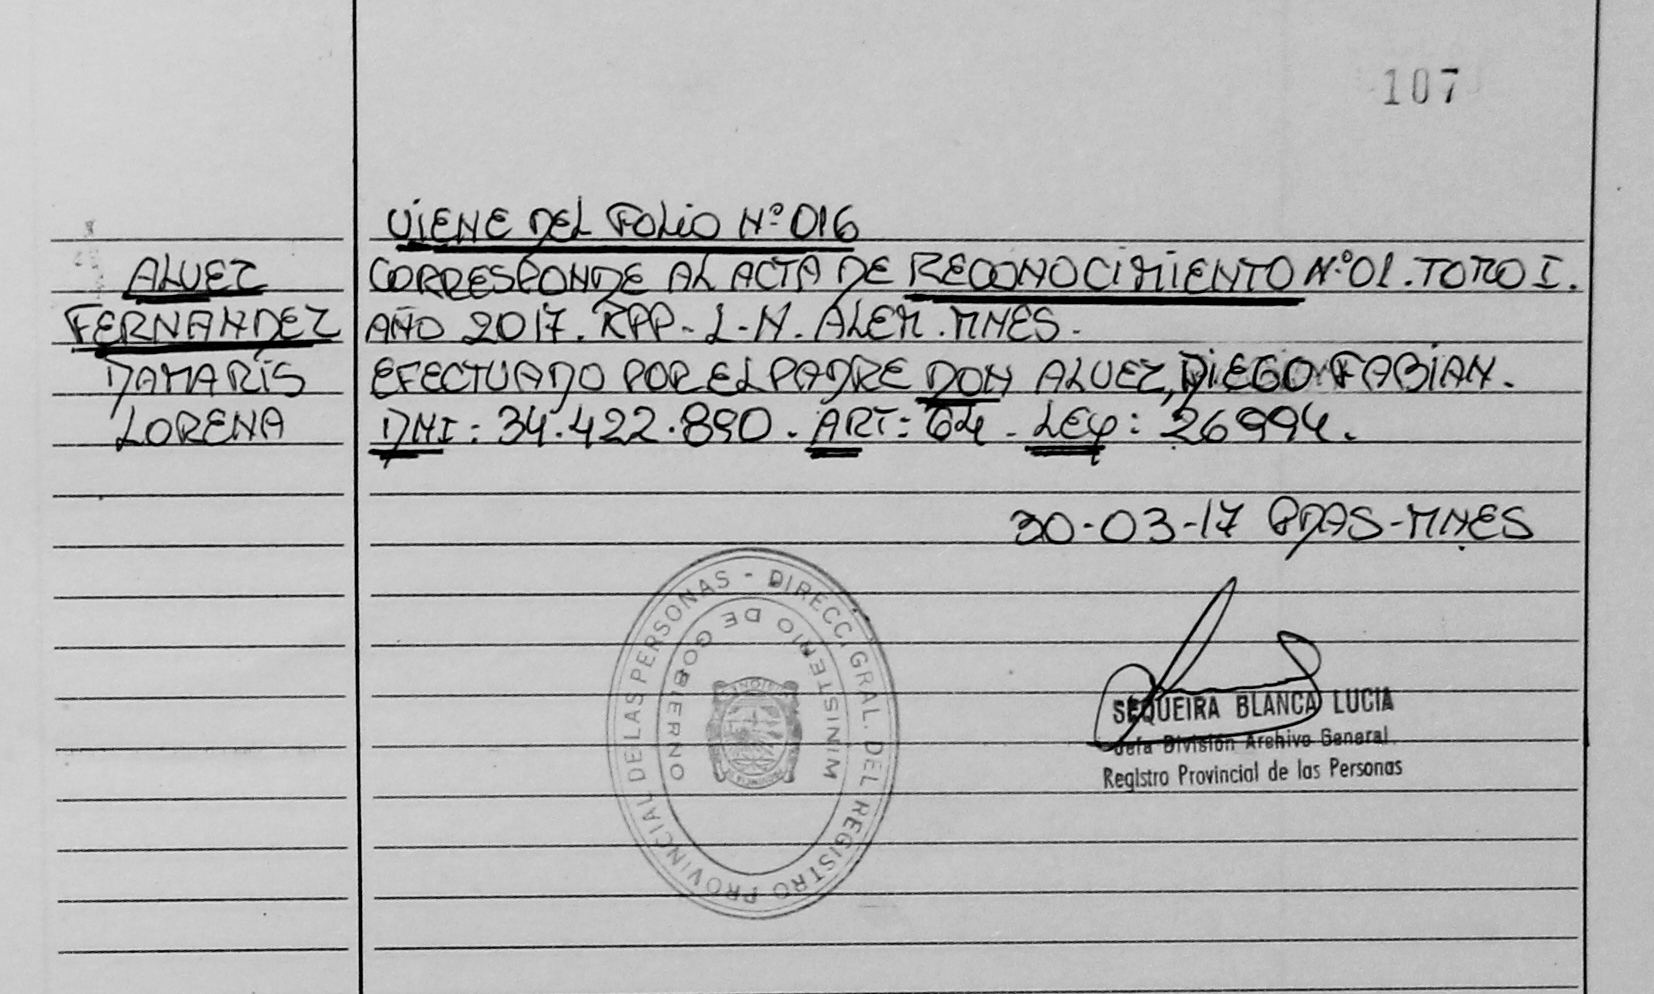 107
VIENE DEL FOLIO Nº 016
ALVEZ
FERNANDEZ
DAMARIS
LORENA
CORRESPONDE AL ACTA DE RECONOCIMIENTO Nº 01. TOMO I.
AÑO 2017. RPP-L-N. ALEM. MNES.
EFECTUADO POR EL PADRE DON ALVEZ, DIEGO FABIAN.
DNI: 34.422.890. ART: 64. LEY: 26994.
30-03-17 PDAS-MNES
DIRECC. GRAL. DEL REGISTRO PROVINCIAL DE LAS PERSONAS -
MINISTERIO DE GOBIERNO
SEQUEIRA BLANCA LUCIA
Jefa División Archivo General
Registro Provincial de las Personas